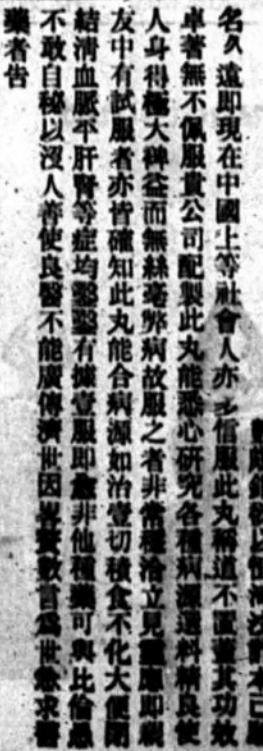 名久遠即現在中國上等社會人亦多信服此丸稱道不置蓋其功效
卓著無不佩服貴公司配製此丸能悉心研究各種病源選料精良使
人身得極大裨益而無絲毫弊病故服之者非常穩洽立見靈應即親
友中有試服者亦皆確知此丸能合病源如治壹切積食不化大便閉
結清血脈平肝腎等症均鑿鑿有據壹服即愈非他種藥可與比倫愚
不敢自秘以沒人善使良醫不能廣傳濟世因畧贅數言爲世欲求醫
藥者告